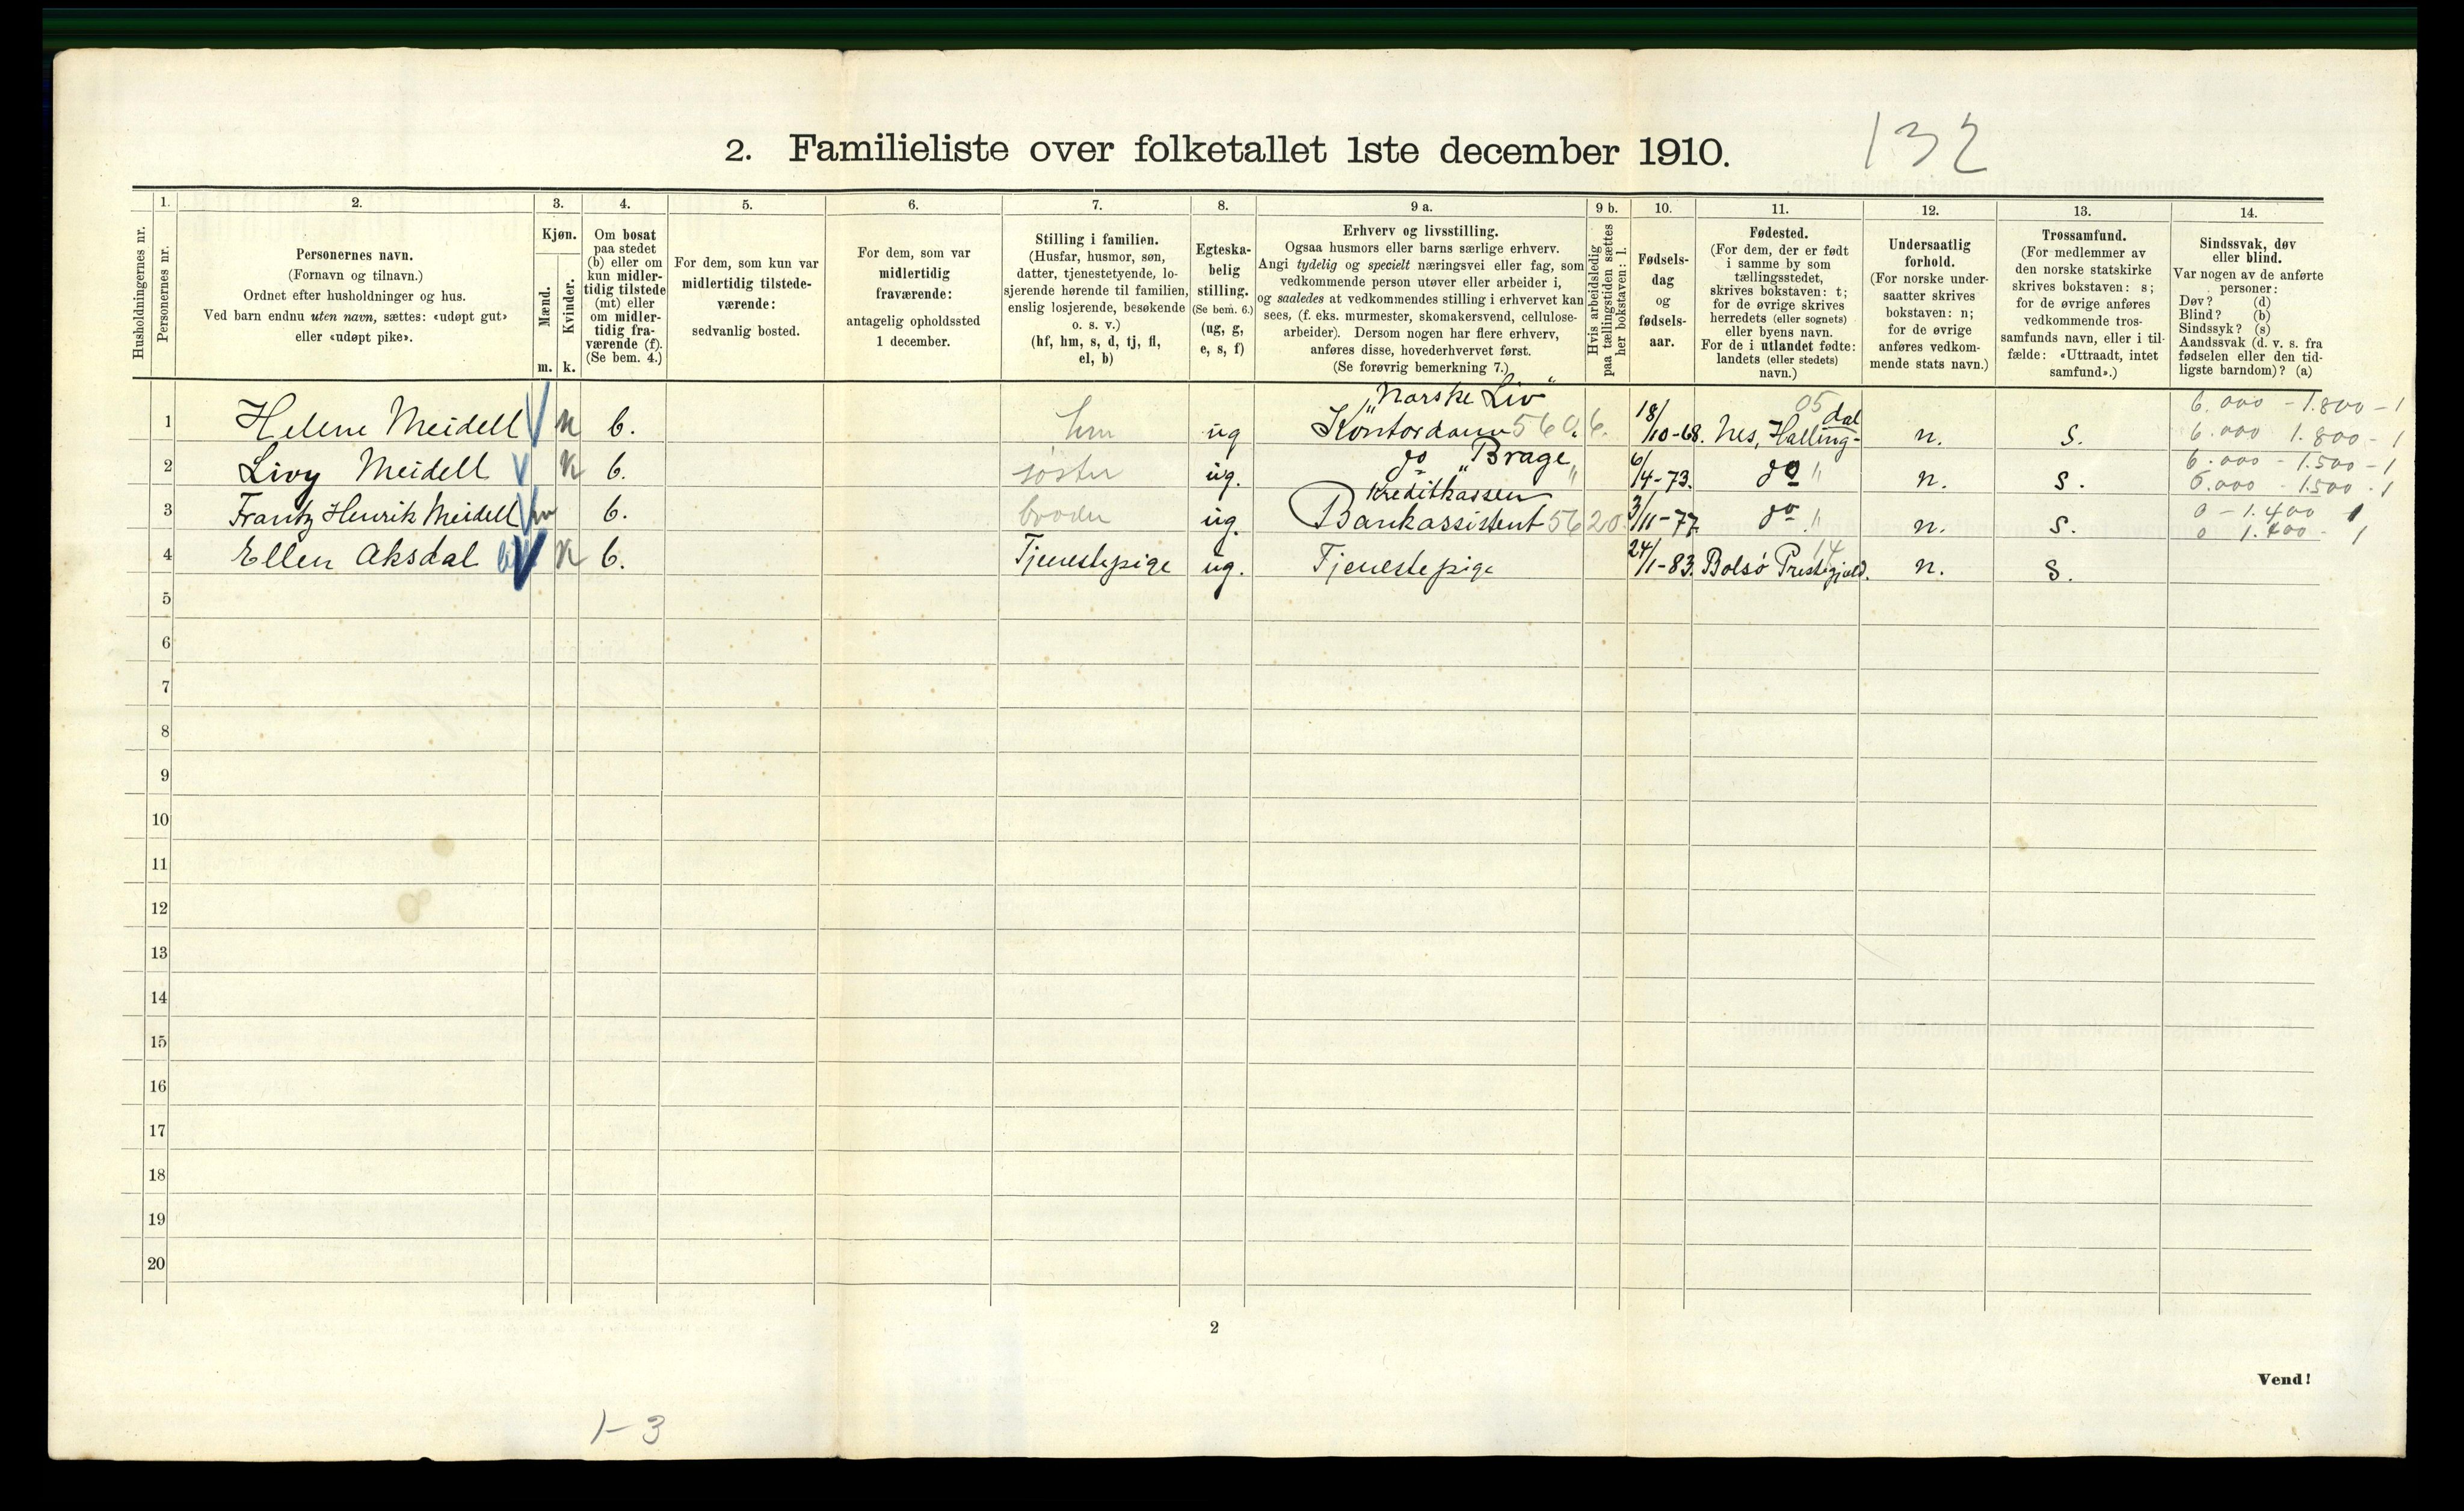 132
2. Familieliste over folketallet 1ste december 1910.
Husholdningernes nr.
1.
Personernes nr.
2.
Personernes navn.
(Fornavn og tilnavn.)
Ordnet efter husholdninger og hus.
Ved barn endnu uten navn, sættes: «udøpt gut»
eller «udøpt pike».
3.
Kjøn.
Mænd.
Kvinder.
m. k.
4.
Om bosat
paa stedet
(b) eller om
kun midler-
tidig tilstede
(mt) eller
om midler-
tidig fra-
værende (f).
(Se bem. 4.)
5.
For dem, som kun var
midlertidig tilstede-
værende:
sedvanlig bosted.
6.
For dem, som var
midlertidig
fraværende:
antagelig opholdssted
1 december.
7.
Stilling i familien.
(Husfar, husmor, søn,
datter, tjenestetyende, lo-
sjerende hørende til familien,
enslig losjerende, besøkende
o. s. v.)
(hf, hm, s, d, tj, fl,
el, b)
8.
Egteska-
belig
stilling.
(Se bem. 6.)
(ug, g,
e, s, f)
9 a.
Erhverv og livsstilling.
Ogsaa husmors eller barns særlige erhverv.
Angi tydelig og specielt næringsvei eller fag, som
vedkommende person utøver eller arbeider i,
og saaledes at vedkommendes stilling i erhvervet kan
sees, (f. eks. murmester, skomakersvend, cellulose-
arbeider). Dersom nogen har flere erhverv,
anføres disse, hovederhvervet først.
(Se forøvrig bemerkning 7.)
9 b.
Hvis arbeidsledig
paa tællingstiden sættes
her bokstaven: l.
10.
Fødsels-
dag
og
fødsels-
aar.
11.
Fødested.
(For dem, der er født
i samme by som
tællingsstedet,
skrives bokstaven: t;
for de øvrige skrives
herredets (eller sognets)
eller byens navn.
For de i utlandet fødte:
landets (eller stedets)
navn.)
12.
Undersaatlig
forhold.
(For norske under-
saatter skrives
bokstaven: n;
for de øvrige
anføres vedkom-
mende stats navn.)
13.
Trossamfund.
(For medlemmer av
den norske statskirke
skrives bokstaven: s;
for de øvrige anføres
vedkommende tros-
samfunds navn, eller i til-
fælde: «Uttraadt, intet
samfund».)
14.
Sindssvak, døv
eller blind.
Var nogen av de anførte
personer:
Døv? (d)
Blind? (b)
Sindssyk? (s)
Aandssvak (d. v. s. fra
fødselen eller den tid-
ligste barndom)? (a)
"Norske Liv" 05 dal 6.000 - 1.800 - 1
1 Helene Meidell k b. hm ug Kontordame 560.6. 18/10-68. Nes, Halling- n. s. 6.000 1.800 - 1
2 Livy Meidell k b. søster ug. do "Brage" 6/4-73. do " n. s. 6.000 - 1.500 - 1
6.000 - 1.500 - 1
Kreditkassen
3 Frantz Henrik Meidell m b. broder ug. Bankassistent 5620. 3/11-77. do " n. s. 0 - 1.400 1
0 1.400 - 1
14
4 Ellen Aksdal k b. Tjenestepige ug. Tjenestepige 24/1-83. Bolsö Prestegjæld. n. s.
5
6
7
8
9
10
11
12
13
14
15
16
17
18
19
20
2
Vend!
1-3